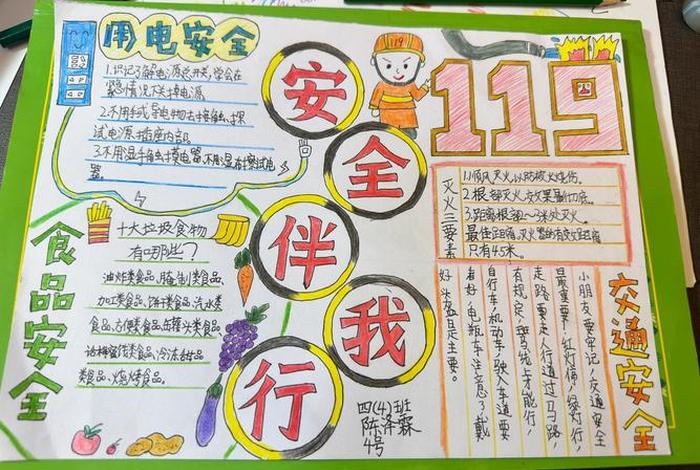 用电安全
1.识记了解电源总开关,学会在
紧急情况下关掉电源
2.不用手或导电物去接触、探
试电源插座内部。
3.不用湿手触摸电器,不用湿布擦拭电
器。
安
全
伴
我
行
119
119
灭火三要素
1.顺风灭火以防被火烧伤。
2.根部灭火效果最彻底。
3.距离根部
最佳距离,灭火器的有效距离
只有4.5米。
食品安全
十大垃圾食物
有哪些?
油炸类食品、腌制类食品、
加工类食品、饼干类食品、汽水类
食品、方便类食品、罐头类食品、
话梅蜜饯类食品、冷冻甜品
类食品、烧烤食品。
交通安全
小朋友要牢记,交通安全
最重要!红灯停,绿灯行,
走路要走人行道过马路,
有规定,斑马线上才能行,
自行车,机动车,驶入车道要
看好,电瓶车注意了戴
好头盔是主要。
四(4)班
陈泽霖
4号